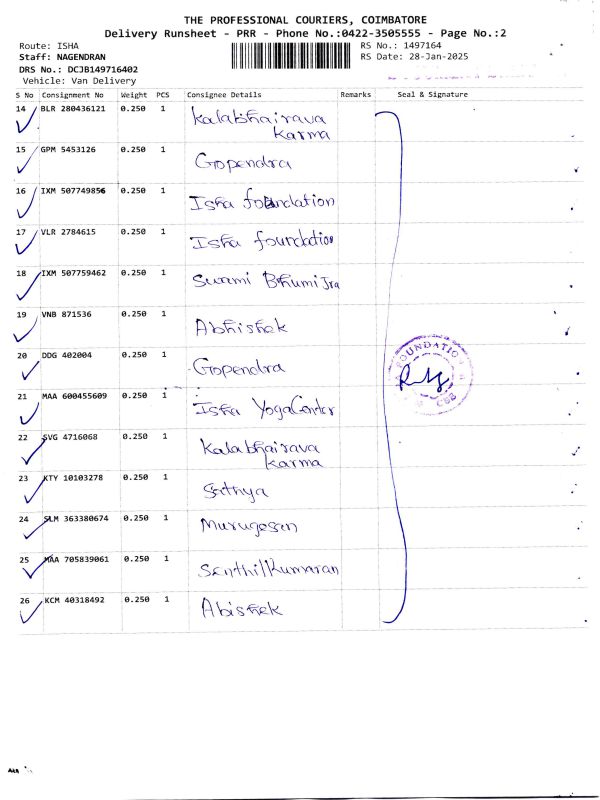 THE PROFESSIONAL COURIERS, COIMBATORE
Delivery Runsheet - PRR - Phone No.:0422-3505555 - Page No.:2
Route: ISHA
RS No.: 1497164
Staff: NAGENDRAN
RS Date: 28-Jan-2025
DRS No.: DCJB149716402
Vehicle: Van Delivery
S No Consignment No Weight PCS Consignee Details Remarks Seal & Signature
14 BLR 280436121 0.250 1 Kalabhairava
Karma
15 GPM 5453126 0.250 1 Gopendra
16 IXM 507749856 0.250 1 Isha foundation
17 VLR 2784615 0.250 1 Isha foundation
18 IXM 507759462 0.250 1 Swami Bhumi Jra
19 VNB 871536 0.250 1 Abhishek
20 DDG 402004 0.250 1 Gopendra
FOUNDATION
CBE
21 MAA 600455609 0.250 1 Isha YogaCenter
22 SVG 4716068 0.250 1 Kalabhairava
Karma
23 KTY 10103278 0.250 1 Sathya
24 SLM 363380674 0.250 1 Murugesan
25 MAA 705839061 0.250 1 Senthilkumaran
26 KCM 40318492 0.250 1 Abishek